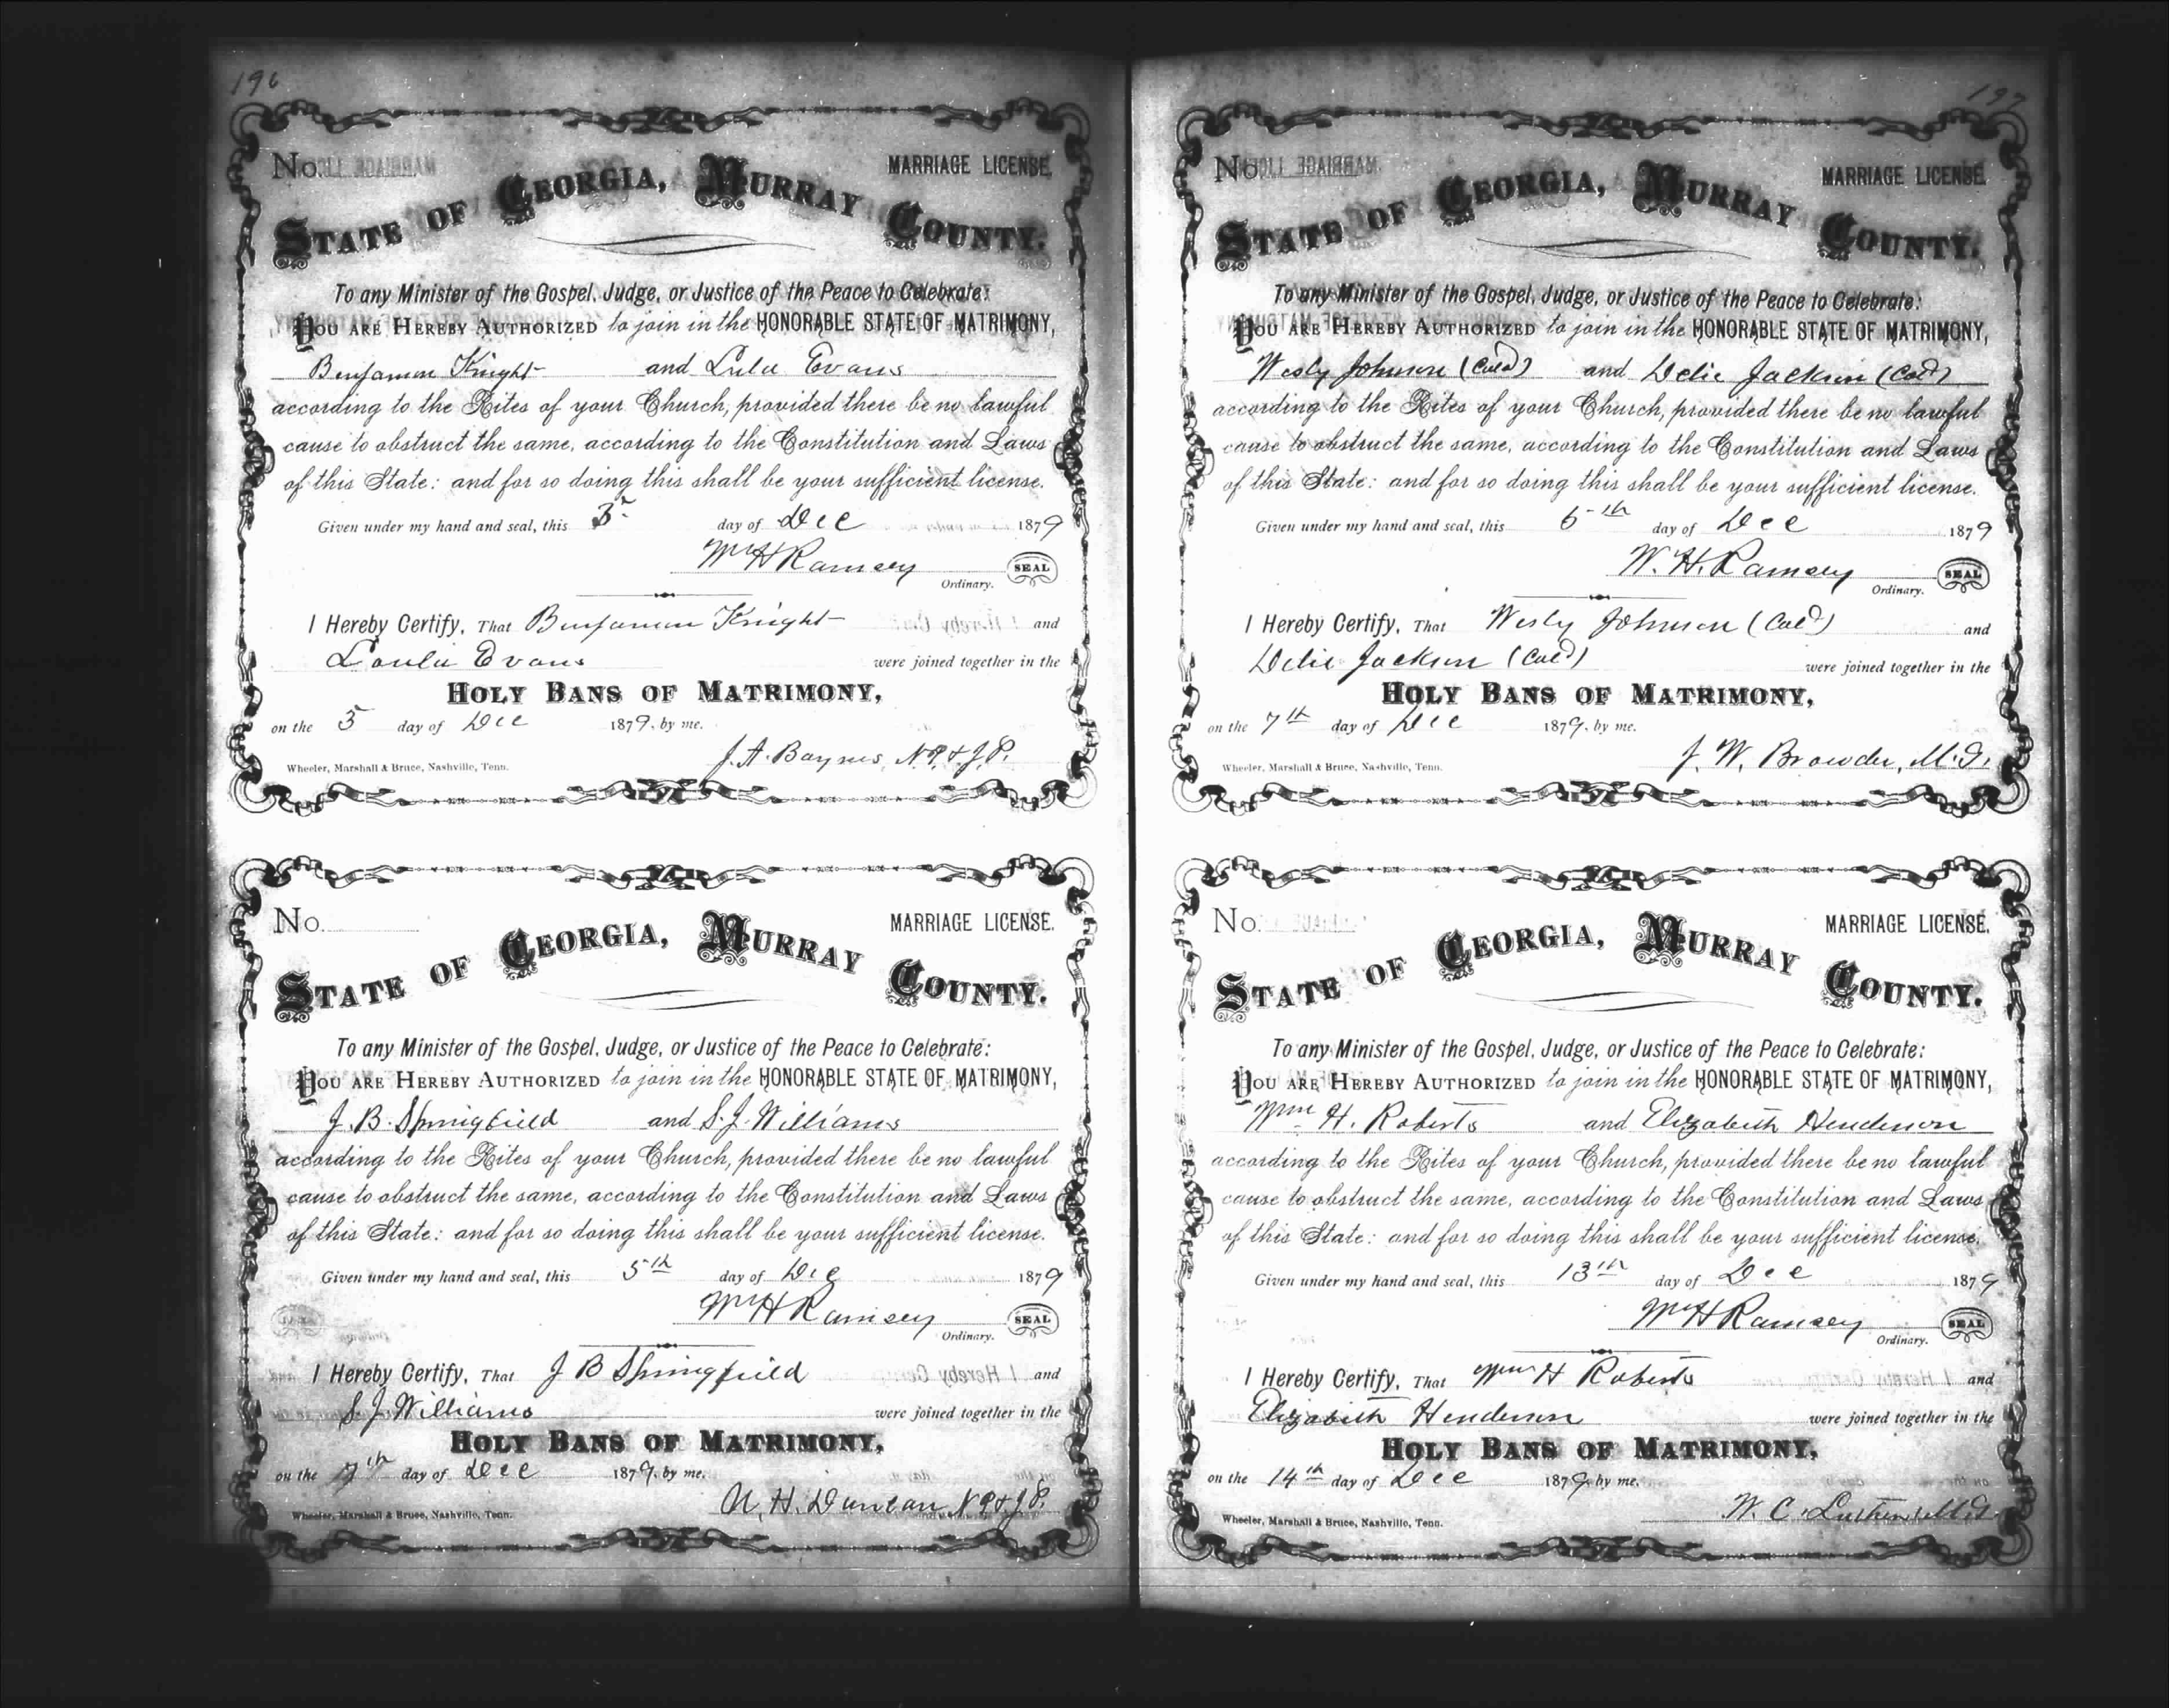 196
No. MARRIAGE LICENSE.
STATE OF GEORGIA, MURRAY COUNTY.
To any Minister of the Gospel, Judge, or Justice of the Peace to Celebrate:
YOU ARE HEREBY AUTHORIZED to join in the HONORABLE STATE OF MATRIMONY,
Benjamin Knight and Lula Evans
according to the Rites of your Church, provided there be no lawful
cause to obstruct the same, according to the Constitution and Laws
of this State: and for so doing this shall be your sufficient license.
Given under my hand and seal, this 5 day of Dec 1879
Wm H Ramsey SEAL
Ordinary.
I Hereby Certify, That Benjamin Knight and
Loula Evans were joined together in the
HOLY BANS OF MATRIMONY,
on the 5 day of Dec 1879, by me.
J. A. Baynes, N.P. & J.P.
Wheeler, Marshall & Bruce, Nashville, Tenn.
No. MARRIAGE LICENSE.
STATE OF GEORGIA, MURRAY COUNTY.
To any Minister of the Gospel, Judge, or Justice of the Peace to Celebrate:
YOU ARE HEREBY AUTHORIZED to join in the HONORABLE STATE OF MATRIMONY,
J. B. Springfield and S. J. Williams
according to the Rites of your Church, provided there be no lawful
cause to obstruct the same, according to the Constitution and Laws
of this State: and for so doing this shall be your sufficient license.
Given under my hand and seal, this 5th day of Dec 1879
Wm H Ramsey SEAL
Ordinary.
I Hereby Certify, That J B Springfield and
S. J. Williams were joined together in the
HOLY BANS OF MATRIMONY,
on the 7th day of Dec 1879, by me.
H. Duncan, N.P. & J.P.
Wheeler, Marshall & Bruce, Nashville, Tenn.
197
No. MARRIAGE LICENSE.
STATE OF GEORGIA, MURRAY COUNTY.
To any Minister of the Gospel, Judge, or Justice of the Peace to Celebrate:
YOU ARE HEREBY AUTHORIZED to join in the HONORABLE STATE OF MATRIMONY,
Wesly Johnson (Cold) and Delie Jackson (Cold)
according to the Rites of your Church, provided there be no lawful
cause to obstruct the same, according to the Constitution and Laws
of this State: and for so doing this shall be your sufficient license.
Given under my hand and seal, this 6th day of Dec 1879
W. H. Ramsey SEAL
Ordinary.
I Hereby Certify, That Wesly Johnson (Cold) and
Delie Jackson (Cold) were joined together in the
HOLY BANS OF MATRIMONY,
on the 7th day of Dec 1879, by me.
J. W. Browder, M.G.
Wheeler, Marshall & Bruce, Nashville, Tenn.
No. MARRIAGE LICENSE.
STATE OF GEORGIA, MURRAY COUNTY.
To any Minister of the Gospel, Judge, or Justice of the Peace to Celebrate:
YOU ARE HEREBY AUTHORIZED to join in the HONORABLE STATE OF MATRIMONY,
Wm H. Roberts and Elizabeth Henderson
according to the Rites of your Church, provided there be no lawful
cause to obstruct the same, according to the Constitution and Laws
of this State: and for so doing this shall be your sufficient license.
Given under my hand and seal, this 13th day of Dec 1879
Wm H Ramsey SEAL
Ordinary.
I Hereby Certify, That Wm H Roberts and
Elizabeth Henderson were joined together in the
HOLY BANS OF MATRIMONY,
on the 14th day of Dec 1879, by me.
W. C. M.G.
Wheeler, Marshall & Bruce, Nashville, Tenn.